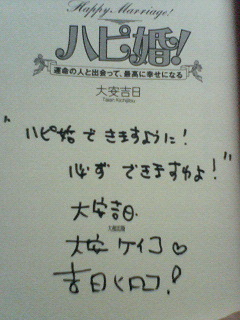 Happy Marriage!
ハピ婚!
運命の人と出会って、最高に幸せになる
大安吉日
Taian Kichijitsu
"ハピ婚できますように!
必ずできますわよ!"
大安吉日
大安ケイコ♡
吉日ヒロコ!